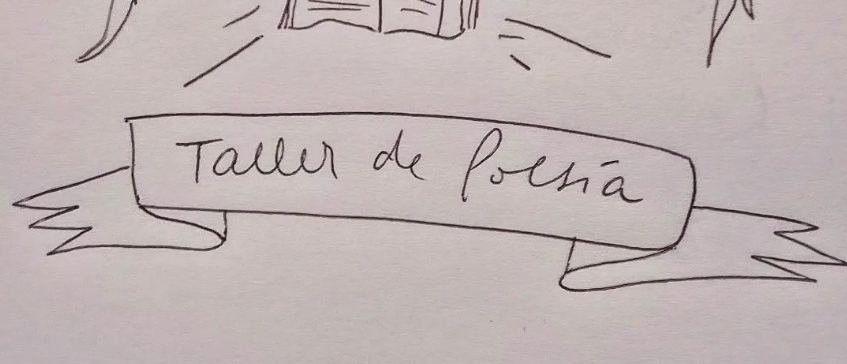 Taller de Poesía